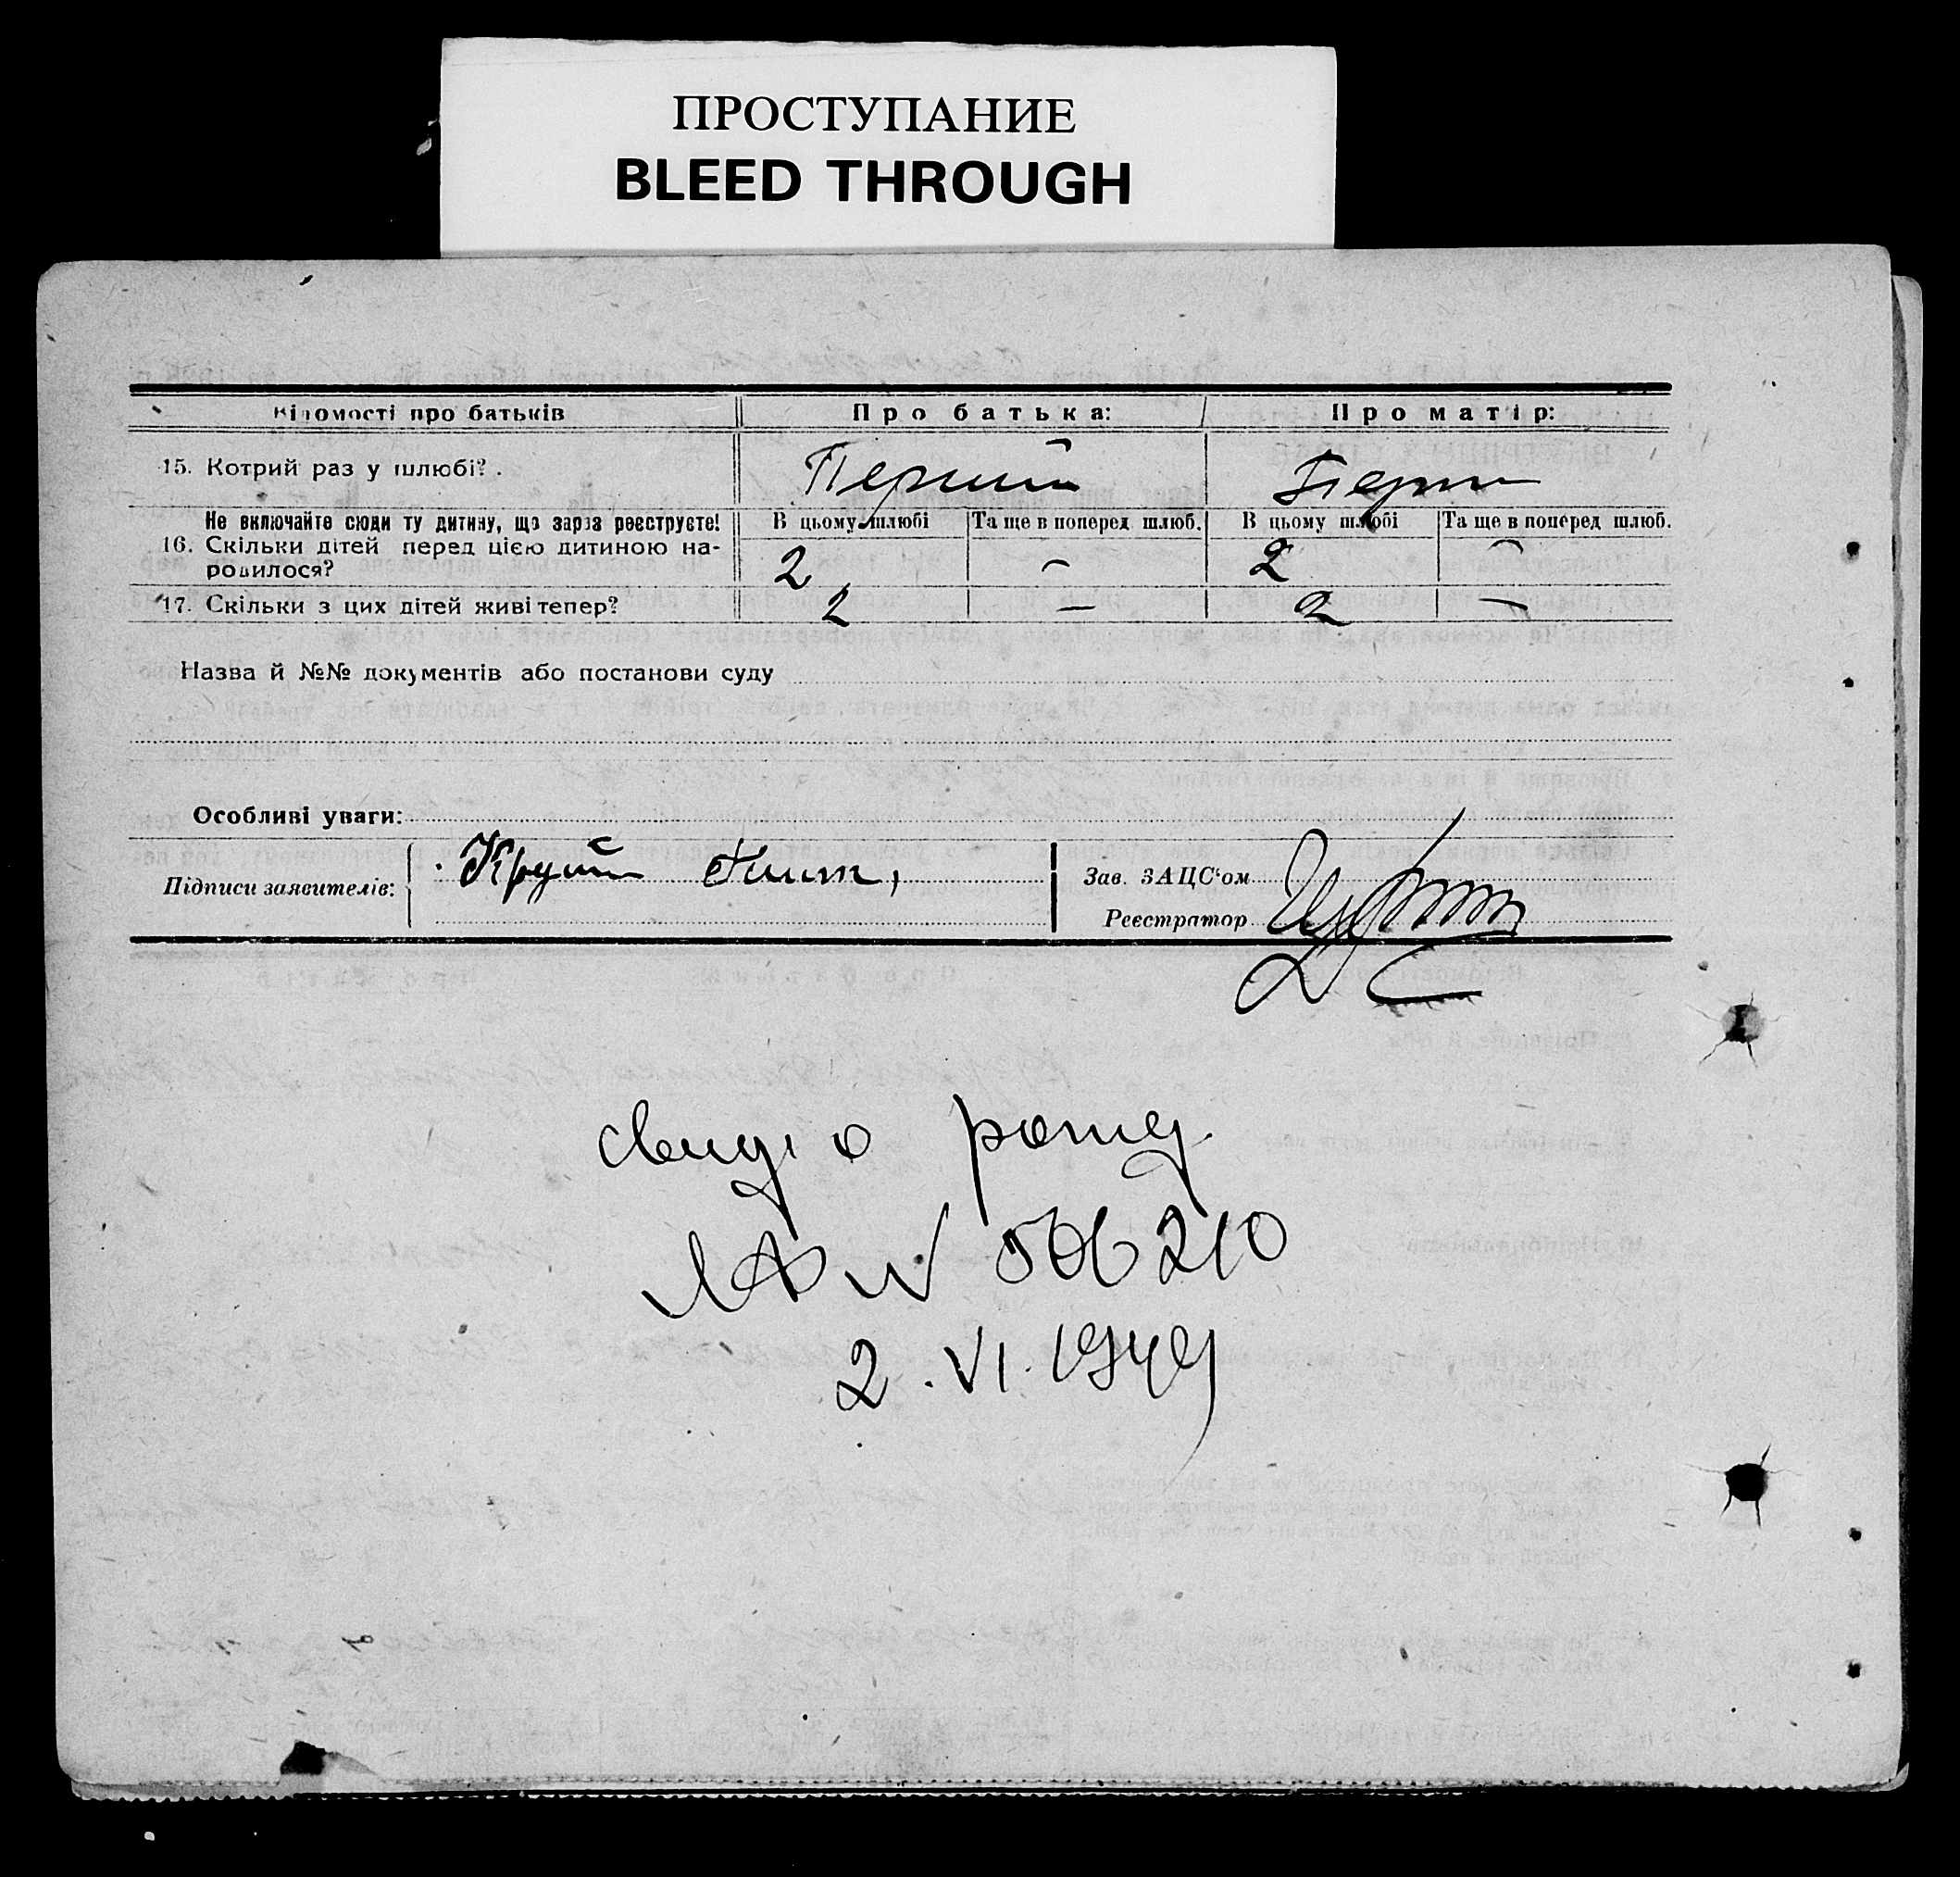 ПРОСТУПАНИЕ
BLEED THROUGH
Відомості про батьків Про батька: Про матір:
15. Котрий раз у шлюбі? . Перший Перш
Не включайте сюди ту дитину, що зараз реєструєте! В цьому шлюбі Та ще в поперед шлюб. В цьому шлюбі Та ще в поперед шлюб.
16. Скільки дітей перед цією дитиною на-
родилося? 2 — 2 —
17. Скільки з цих дітей живі тепер? 2 — 2 —
Назва й №№ документів або постанови суду
Особливі уваги:
Підписи заявителів: Зав. ЗАЦС'ом
Реєстратор
свид о рожд.
№ 506210
2.VI.1949